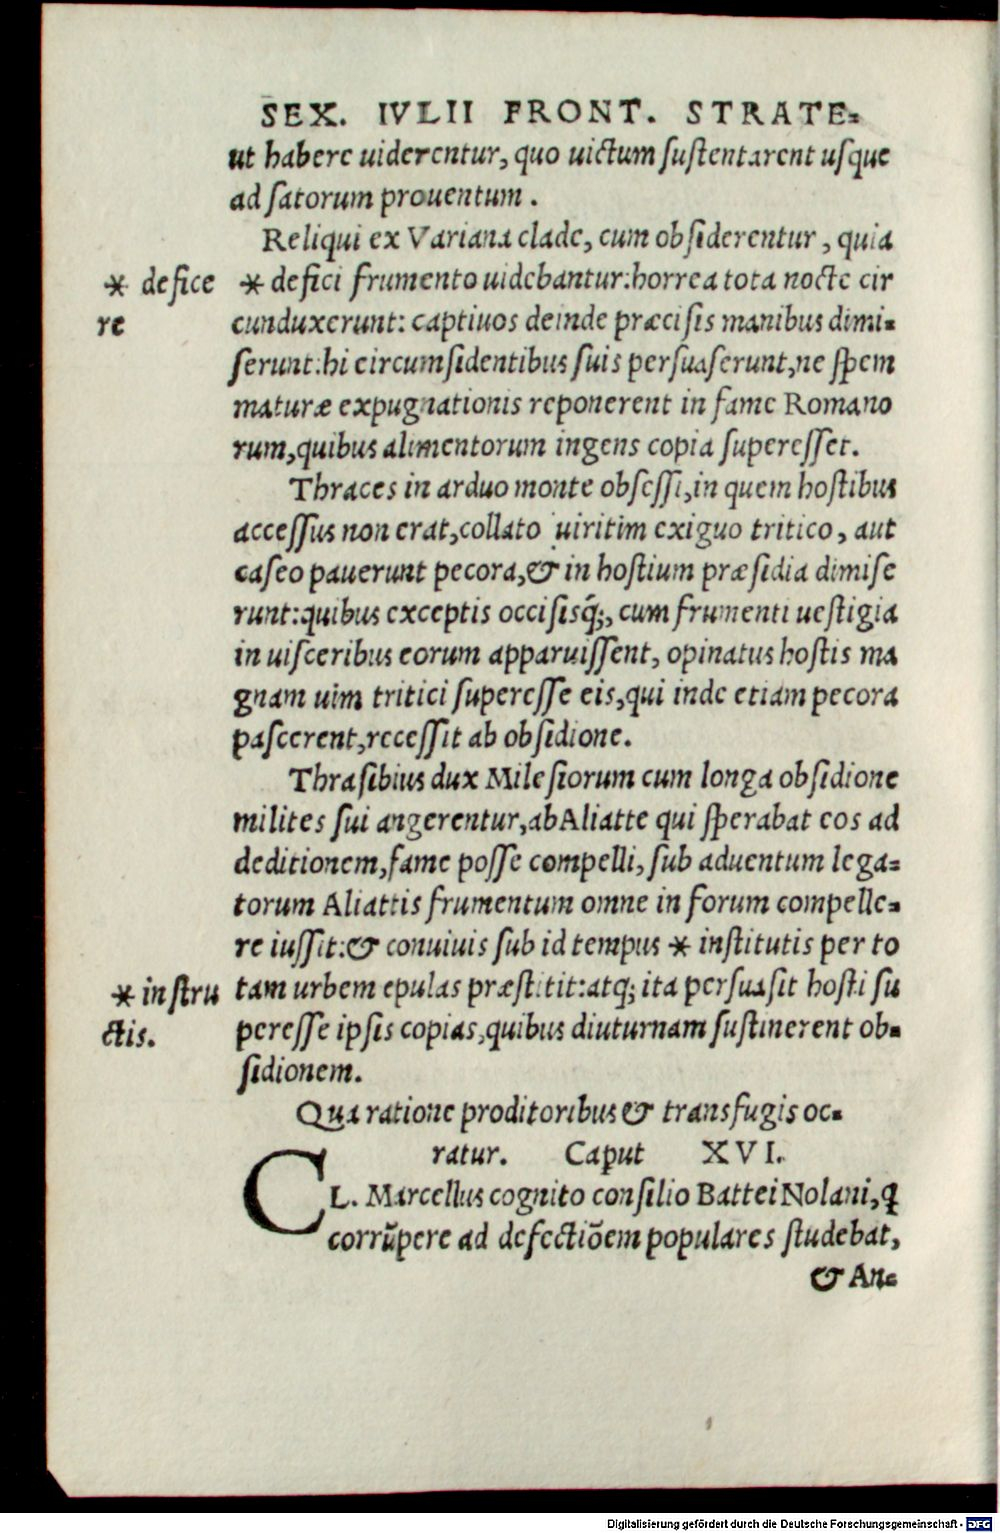 SEX. IVLII FRONT. STRATE-
ut habere uiderentur, quo uictum sustentarent usque
ad satorum prouentum.
Reliqui ex Variana clade, cum obsiderentur, quia
* defice
re
* defici frumento uidebantur: horrea tota nocte cir
cunduxerunt: captiuos deinde præcisis manibus dimi-
serunt: hi circumsidentibus suis persuaserunt, ne spem
maturæ expugnationis reponerent in fame Romano
rum, quibus alimentorum ingens copia superesset.
Thraces in arduo monte obsessi, in quem hostibus
accessus non erat, collato uiritim exiguo tritico, aut
caseo pauerunt pecora, & in hostium præsidia dimise
runt: quibus exceptis occisisq́;, cum frumenti uestigia
in uisceribus eorum apparuissent, opinatus hostis ma
gnam uim tritici superesse eis, qui inde etiam pecora
pascerent, recessit ab obsidione.
Thrasibius dux Milesiorum cum longa obsidione
milites sui angerentur, ab Aliatte qui sperabat eos ad
deditionem, fame posse compelli, sub aduentum lega-
torum Aliattis frumentum omne in forum compelle-
re iussit: & conuiuis sub id tempus * institutis per to
* instru
ctis.
tam urbem epulas præstitit: atq; ita persuasit hosti su
peresse ipsis copias, quibus diuturnam sustinerent ob-
sidionem.
Qua ratione proditoribus & transfugis oc-
ratur. Caput XVI.
CL. Marcellus cognito consilio Battei Nolani, ꝗ
corrūpere ad defectiōem populares studebat,
& An-
Digitalisierung gefördert durch die Deutsche Forschungsgemeinschaft - DFG